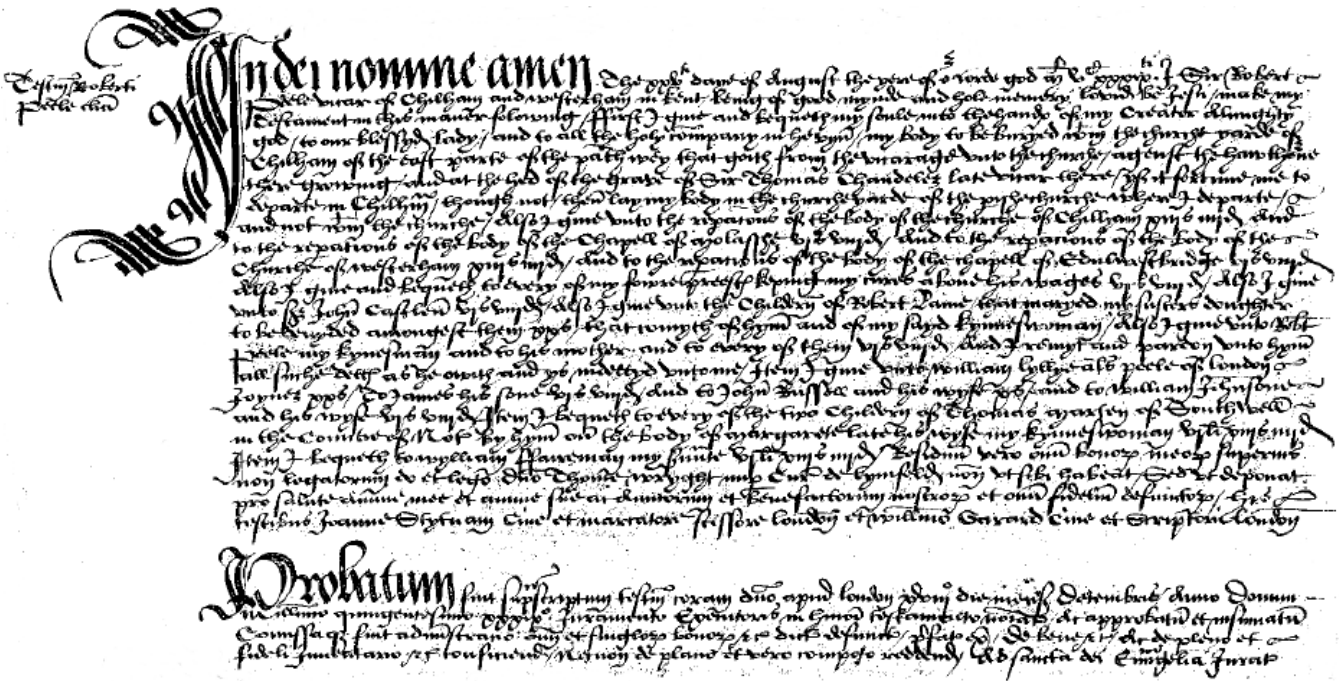 Testm Roberti
Peele clici
In dei nomine amen The xxvth daye of August the yere of or lorde god m vc xxxixti. I Sir Robert
Peele vicar of Chilham and westerham in kent being of good mynde and hole memory lovid be Jesu make my
Testament in this maner folowing / ffirst I give and bequeth my soule into the handes of my Creator Almighty
god / to our blessyd lady / and to all the holy company in hevyn / my body to be buryed wtin the churche yarde of
Chilham of the east parte of the path wey that goith from the vicarage unto the churche / agenst the hawthorne
there growing / and at the hed of the grave of Sir Thomas Chandeler late vicar there / yf it fortune me to
departe in Chillam / though not / then lay my body in the churche yarde of the pishe churche where I departe /
and not wtin the churche / Also I give unto the repacions of the body of the churche of Chilham xiijs iiijd / And
to the repacions of the body of the Chapell of Molasshe vjs viijd / And to the repacions of the body of the
Churche of westerham xiijs iiijd / and to the repacions of the body of the chapell of Edulwestbridge vjs viijd
Also I give and bequeth to every of my fowre preestes keping my cures above his wages vjs viijd / Also I give
unto Sr John Castlen vjs viijd / Also I give unto the Childern of Robert Paine / that maryed my susters doughter
to be devyded amongest them xxs / that comyth of hym and of my sayd kynneswoman / Also I give unto Robt
Peele my kynesman and to his mother / and to every of them vjs viijd / And I remyt and pardon unto hym
all suche dettes as he owith and ys indettyd unto me / Item I give unto william lyllye als peele of london
Joyner xxs / To James his sone vjs viijd / And to John Russell and his wyfe xs / and to william Johnsone
and his wyfe vjs viijd / Item I bequeth to every of the two Childern of Thomas Marsey of Southwell
in the Countie of Not by hym on the body of Margarete late his wyfe my kynneswoman vjli xiijs iiijd
Item I bequeth to wylliam ffaireman my svnte vjli xiijs iiijd / Residuum vero oim bonor meor superius
non legatorum do et lego dno Thome wryght nup Cur de lymsfeld non ut sibi habeat / Sed ut deponat
pro salute anime mee et anime sue ac amicorum et benefactorum nostror et oim fidelium defunctor / hijs
testibus Joanne Stytuam Cive et mercatore Scissore london et willmo Garard Cive et Scriptoris london
Probatum fuit suprascriptum testm coram dno apud london die mensis Decembris Anno Domini
Millimo quingentesimo xxxixo Juramento Executoris in hmoi testamento noiat / Ac approbatum et insinuatum
Comissaq fuit admistracio oim et singlor bonor &c dict defuncti / De bene &c / Ac de pleno et
fideli Inventario &c conficiend / Necnon de plano et vero compoto reddend / Ad sancta dei Evangelia Jurat